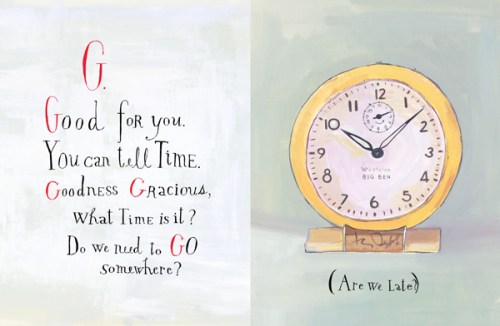 G.
Good for you.
You can tell Time.
Goodness Gracious,
What Time is it?
Do we need to GO
somewhere?
11 12 1
10 2
9 3
8 4
7 6 5
Westclox
BIG BEN
(Are we Late?)